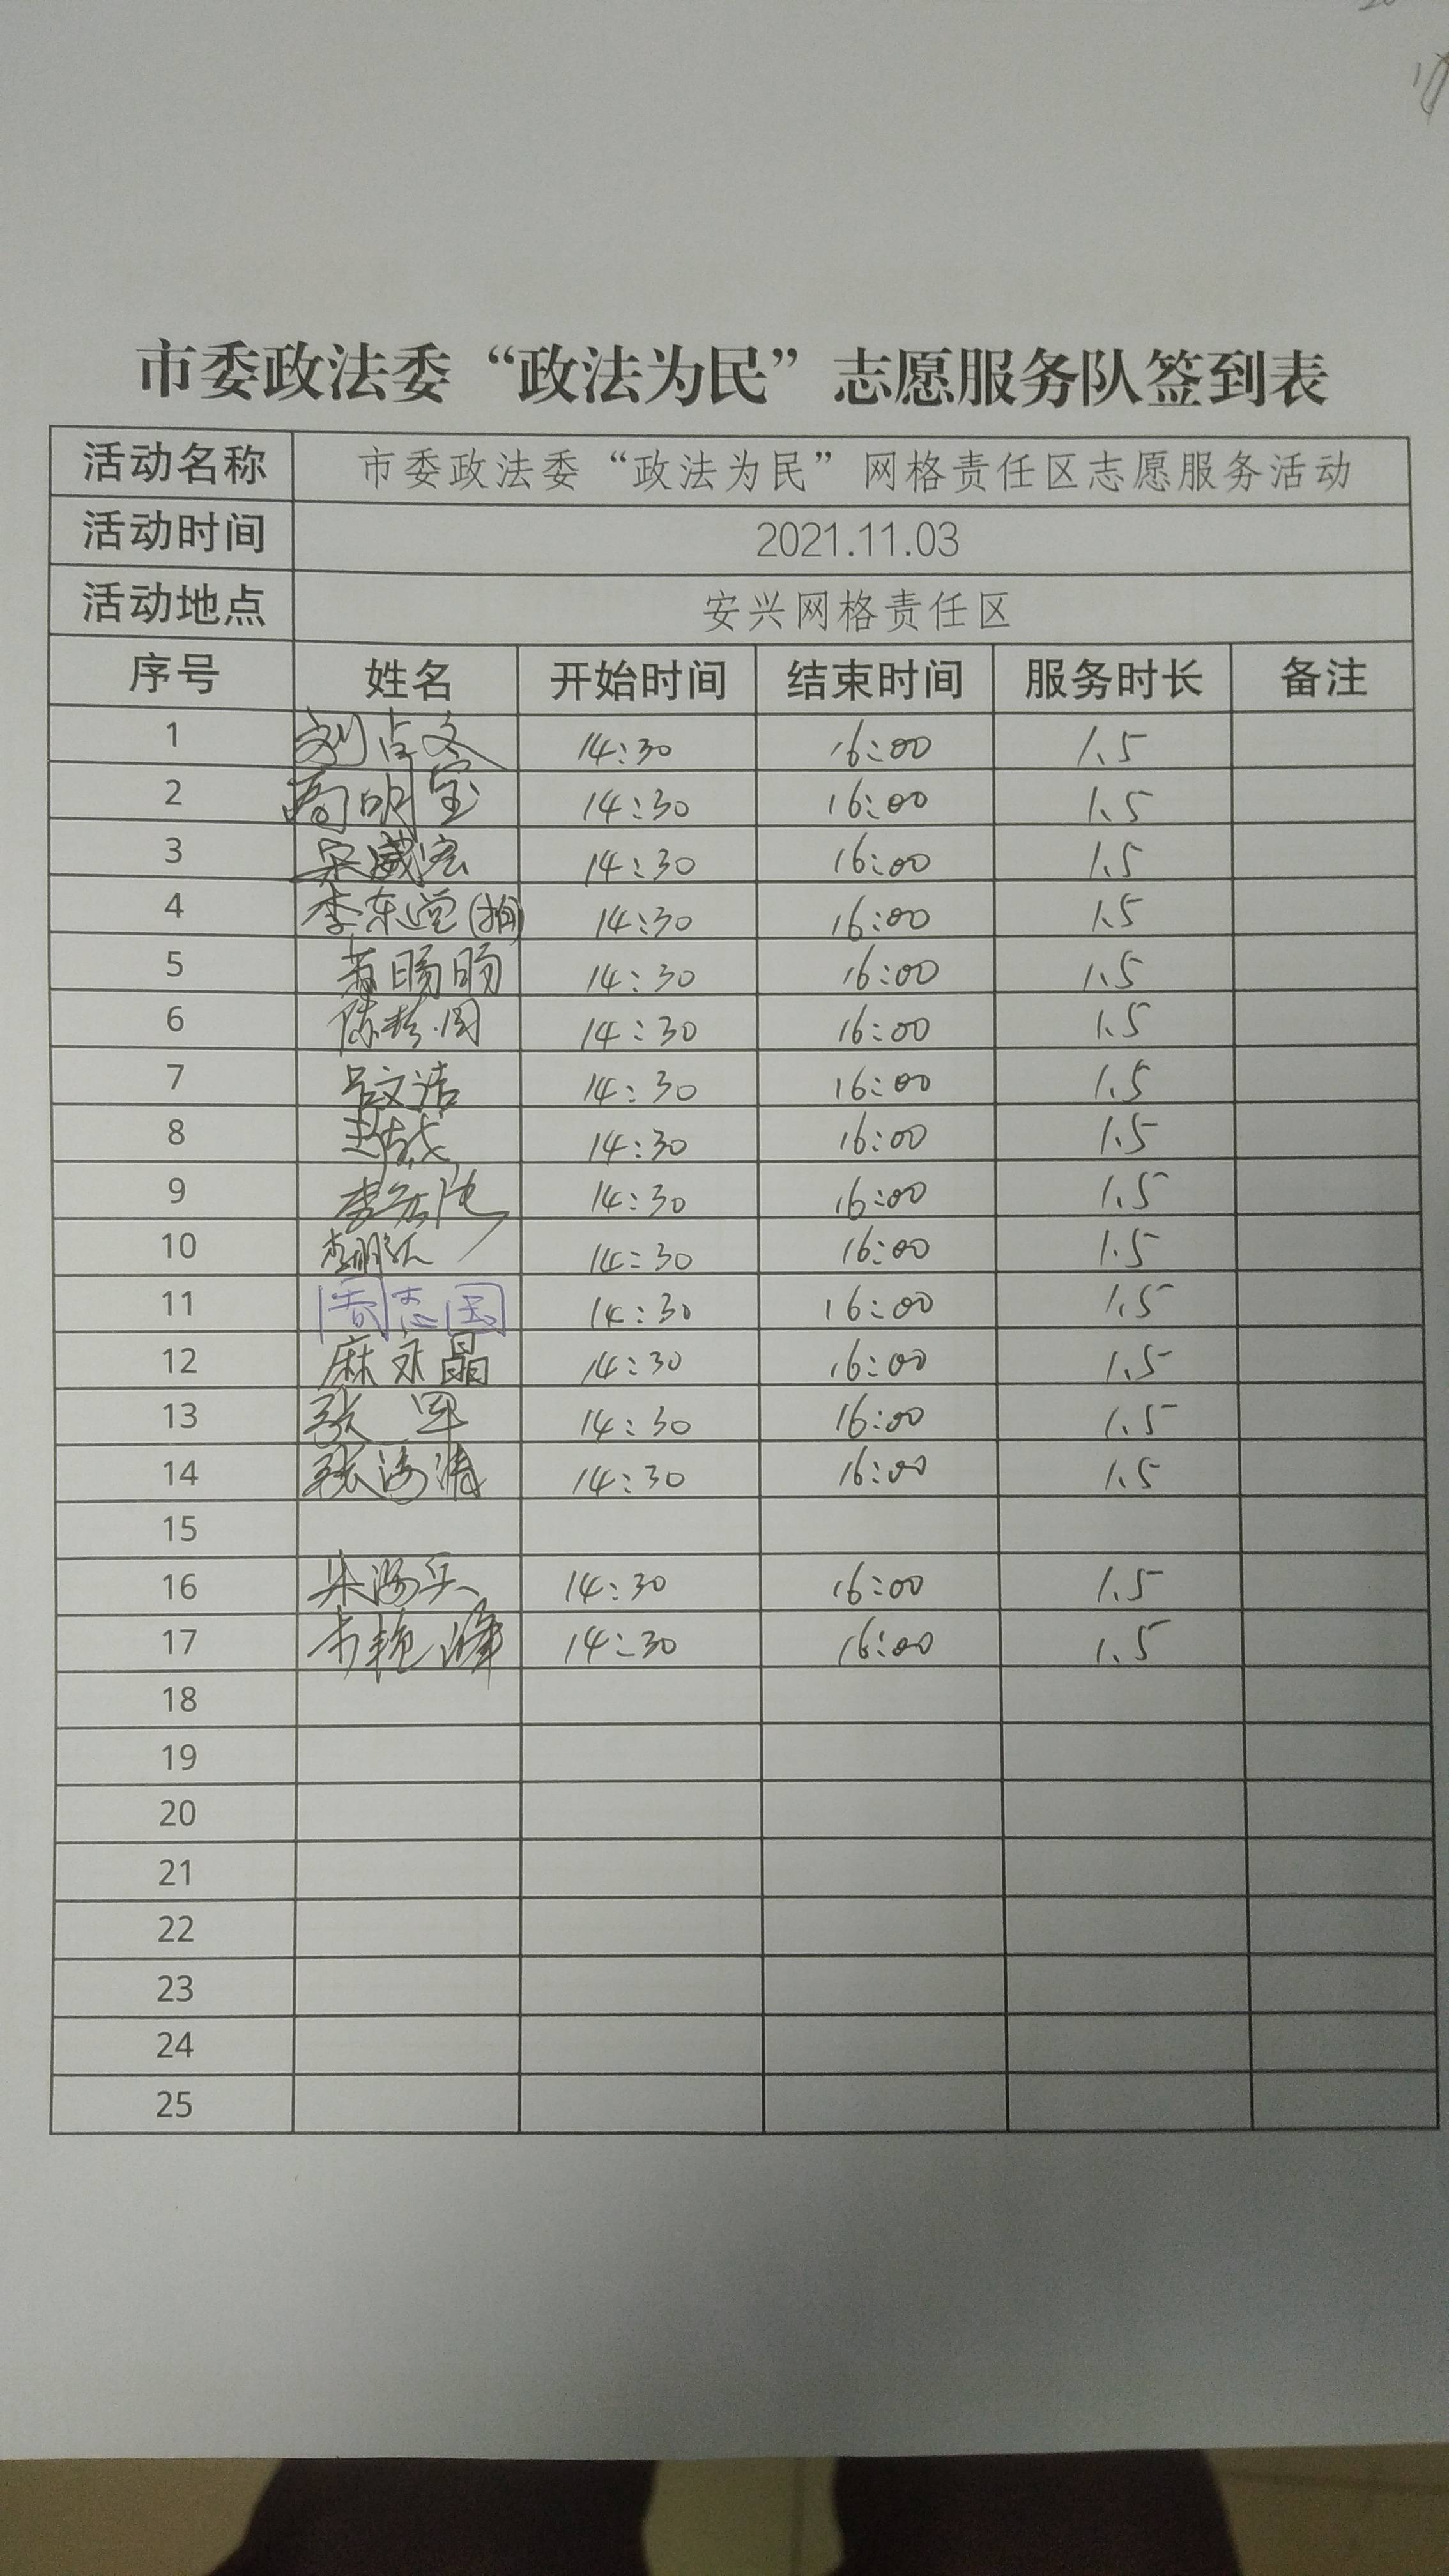 市委政法委“政法为民”志愿服务队签到表
活动名称 市委政法委“政法为民”网格责任区志愿服务活动
活动时间 2021.11.03
活动地点 安兴网格责任区
序号 姓名 开始时间 结束时间 服务时长 备注
1 刘占文 14:30 16:00 1.5
2 明宝 14:30 16:00 1.5
3 宋威宏 14:30 16:00 1.5
4 李东 14:30 16:00 1.5
5 14:30 16:00 1.5
6 陈 14:30 16:00 1.5
7 吕文洁 14:30 16:00 1.5
8 赵 14:30 16:00 1.5
9 李 14:30 16:00 1.5
10 李 14:30 16:00 1.5
11 志国 14:30 16:00 1.5
12 麻永晶 14:30 16:00 1.5
13 张军 14:30 16:00 1.5
14 张海涛 14:30 16:00 1.5
15
16 14:30 16:00 1.5
17 韦艳峰 14:30 16:00 1.5
18
19
20
21
22
23
24
25